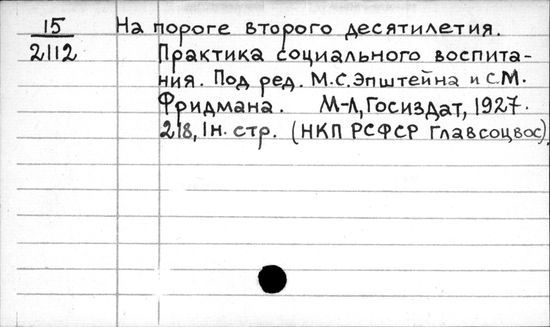 15
2112
На пороге второго десятилетия.
Практика социального воспита-
ния. Под ред. М.С.Эпштейна и С.М.
Фридмана. М-Л, Госиздат, 1927.
218, 1н. стр. (НКП РСФСР Главсоцвос).